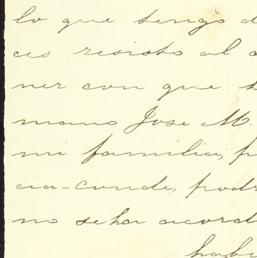 lo que tengo d
ces resisto al a
ner con que t
mano Jose M
mi familia, p
cia-conde, podr
no se ha acord
habi